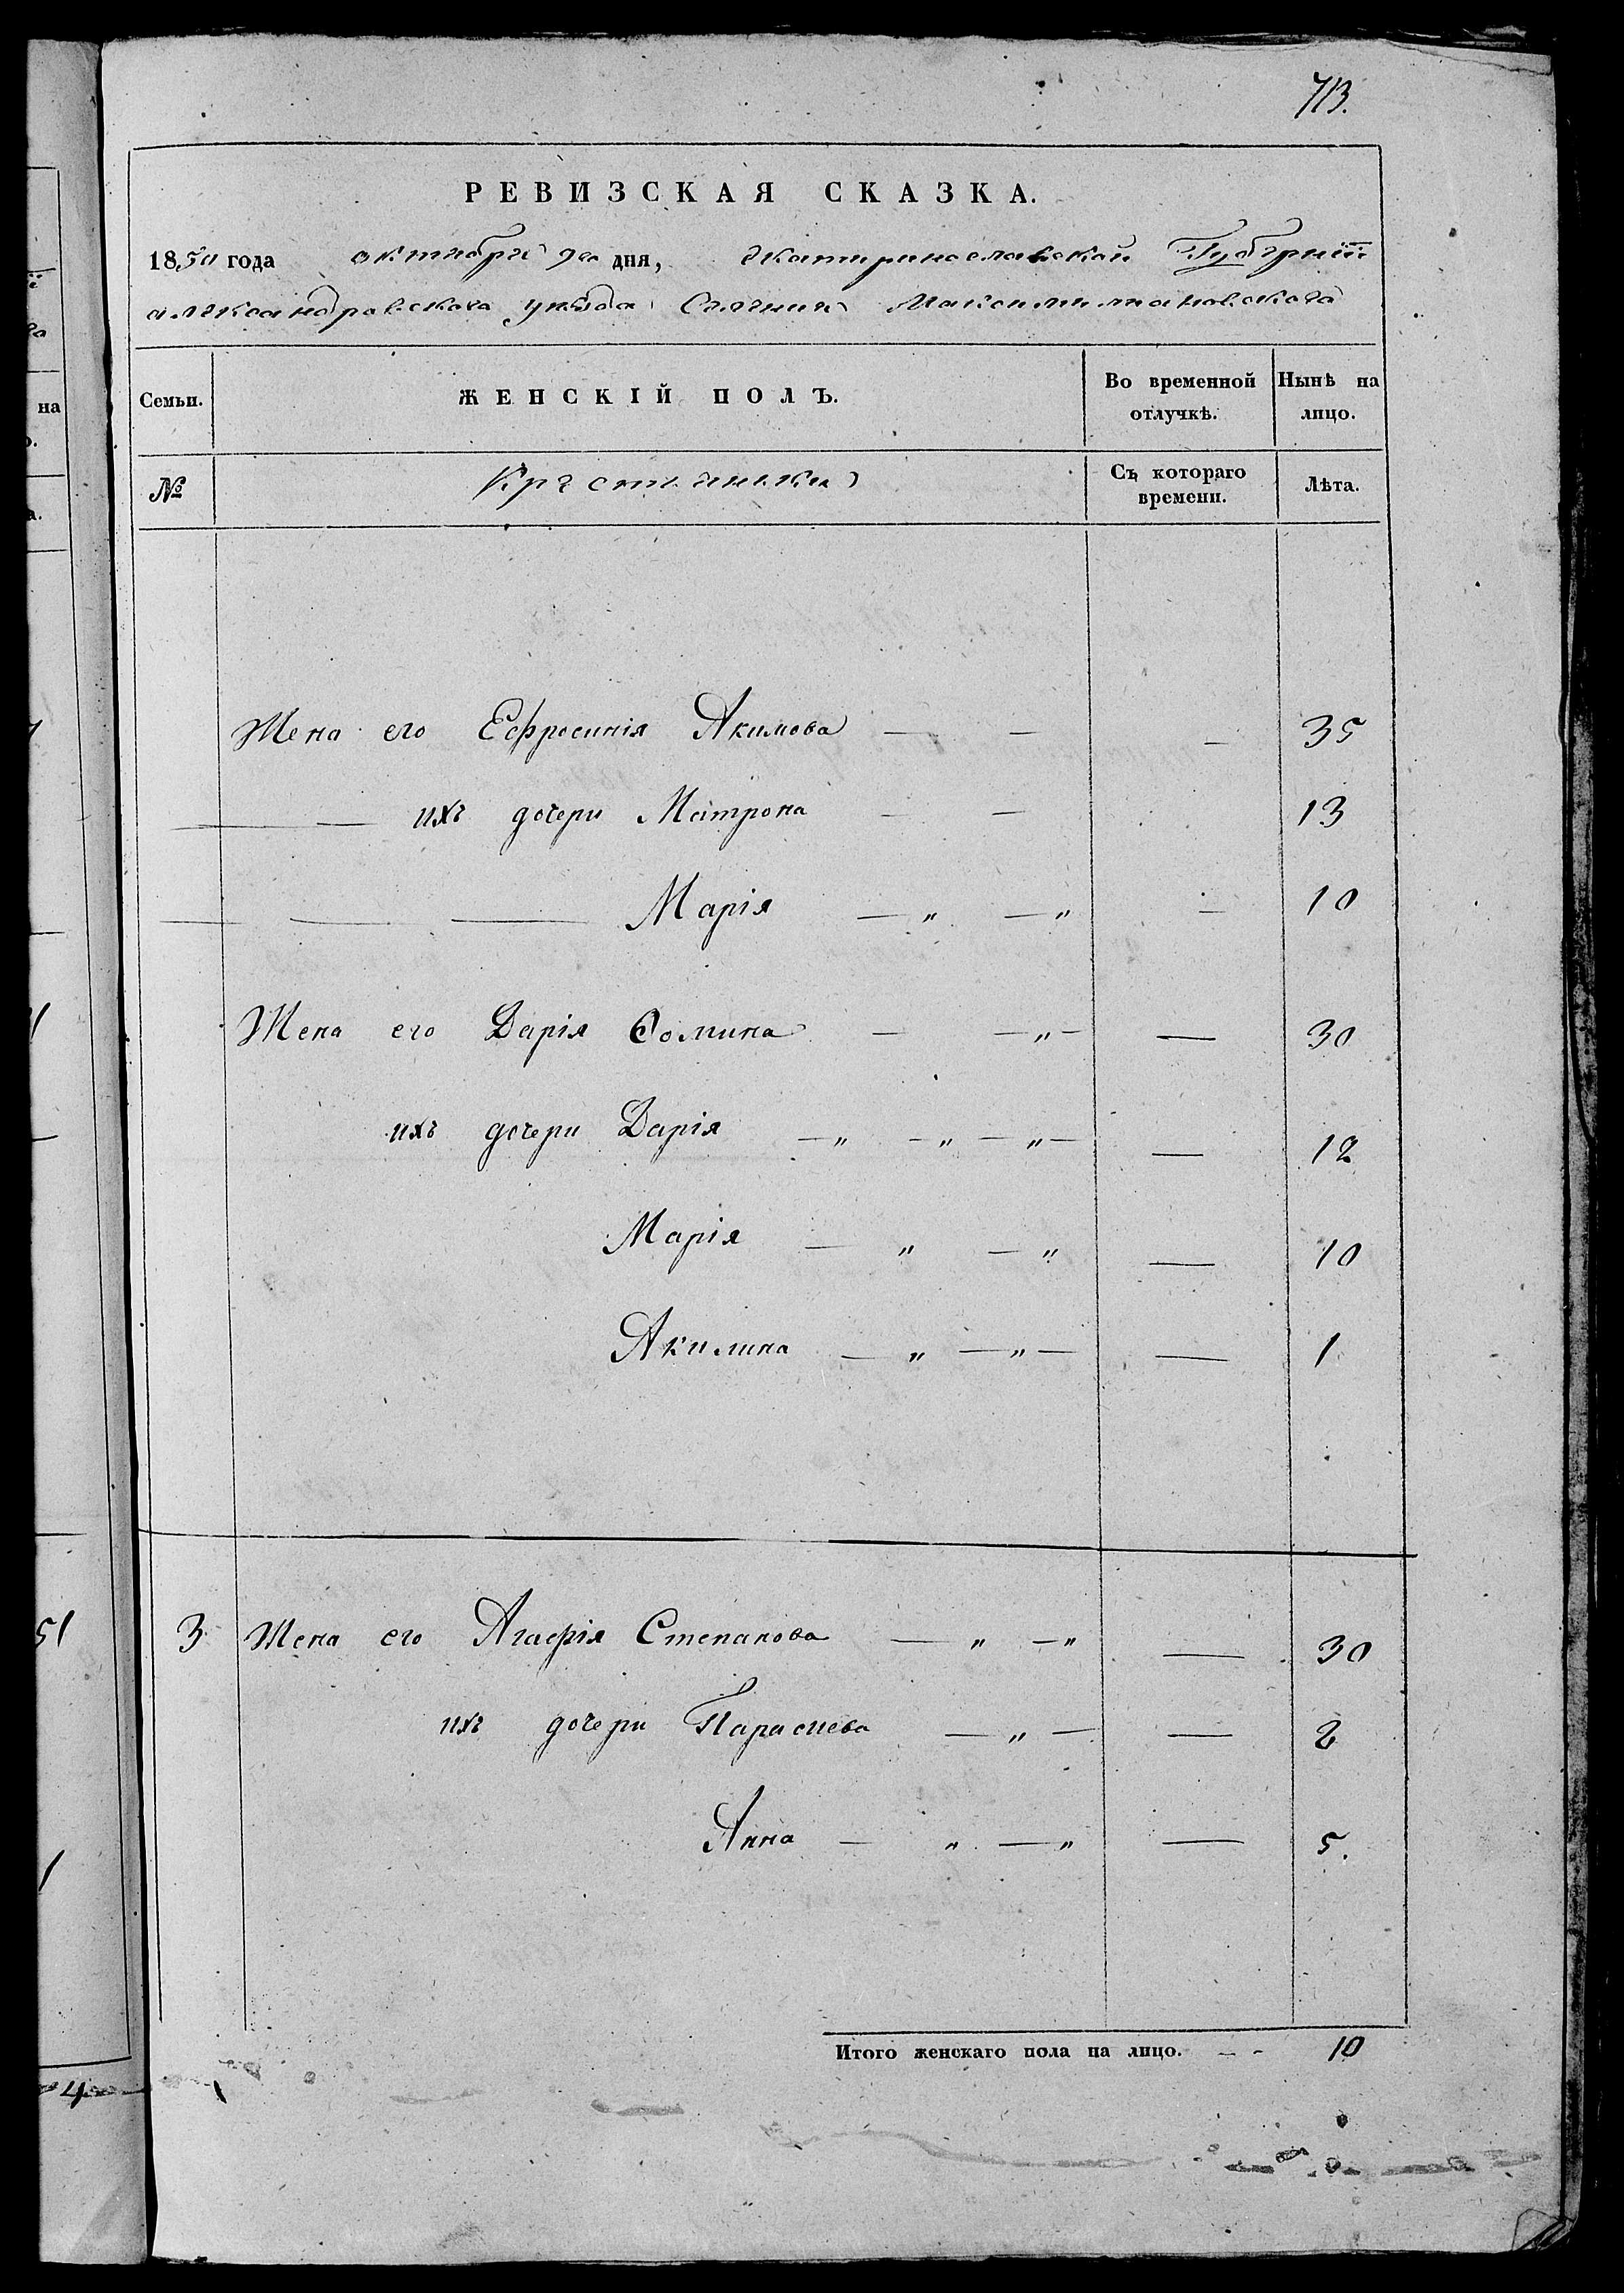 713.
РЕВИЗСКАЯ СКАЗКА.
1850 года октября 9го дня, Екатеринославской Губерніи
александровскаго уѣзда Селенія Максимилиановскаго
Семьи. ЖЕНСКІЙ ПОЛЪ. Во временной отлучкѣ. Нынѣ на лицо.
№ Крестьянки Съ котораго времени. Лѣта.
Жена его Ефросинія Акимова — — — 35
— — ихъ дочери Матрона — — 13
— — — Марія — „ — „ — 10
Жена его Дарія Ѳомина — — „ — — 30
ихъ дочери Дарія — „ — „ — „ — — 12
Марія — „ — „ — 10
Акилина — „ — „ — — 1
3 Жена его Агафія Степанова — „ — „ — 30
ихъ дочери Параскева — „ — — 2
Анна — „ — „ — 5.
Итого женскаго пола на лицо. — - 10
на
51
4